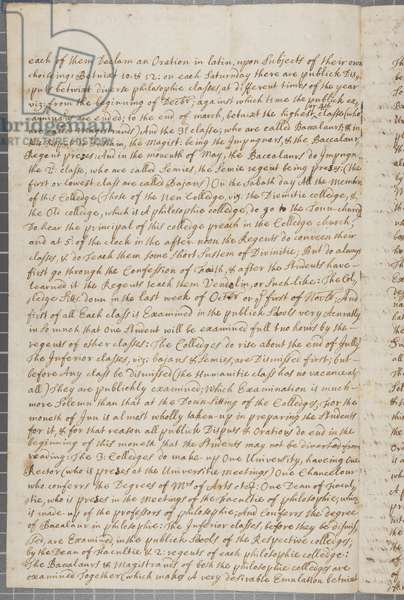 each of them Declam an Oration in latin, upon Subjects of their own
choiceing: Betwixt 10 & 12: on each Saturnday there are publick Dis,
puts betwixt diverse philosophie classes, at different times of the year
viz; from the beginning of Decbr; against which time the publick ex,
aminat are ended; to the end of march, betwixt the highest classe (who
And the 3d classe, who are called Baccalaurs; & in
the Magist: being the Impugners, & the Baccalaur
Regent preses: And in the moneth of May, the Baccalaurs do Impugn
the 2d classe, who are called Semies, the Semie regent being preses: (the
first or lowest class are called Bajans) On the Sabath day All the Members
of this Colledge (Those of the New Colledge, viz: the Divinitie colledge, &
the Old colledge, which is A philosophie colledge,) do go to the Toun-church
To hear the principal of this colledge preach in the Colledge church,
and at 5: of the clock in the after noon the Regents do conveen their
classes, & do Teach them some Short System of Divinitie; But do always
first go through the Confession of Faith, & after the Students have
learned it the Regents teach them Vendolin, or Such-like: The Col,
ledge Sits doun in the last week of Octobr or ye first of Novbr: And
first of all Each class is Examined in the publick Schools very Accuratly
in so much that One Student will be examined full two hours by the
regents of other classes: The Colledges do rise about the end of July;
The Inferior classes, viz: Bajans & Semies, are Dismissed first; but
before Any class be Dismissed (the Humanitie class has no vacance at
all) They are publickly examined; Which Examination is much
more Solemn than that at the Doun-sitting of the Colledge; For the
moneth of Jun is almost wholly taken up in preparing the Students
for it, & for that reason all publick Disputs & Orations do end in the
beginning of this moneth that the Students may not be diverted from
reading: The 3: Colledges do make up One University, haveing One
Rector (who is preses at the Universitie meetings) One Chancelour
who conferrs the Degrees of Mr of Arts &tc: One Dean of Facul,
tie, who is preses in the meetings of the Facultie of philosophie, which
is made up of the professors of philosophie; And conferrs the degree
of Baccalaur in philosophie: The Inferior classes, before they be dismis,
sed, are Examined in the publick Schools of the Respective colledges,
by the Dean of Facultie & 2: regents of each philosophie colledge:
The Baccalaurs & Magistrands of both the philosophie colledges are
examined Together (which makes A very desirable Emulation betwixt
bridgeman
images